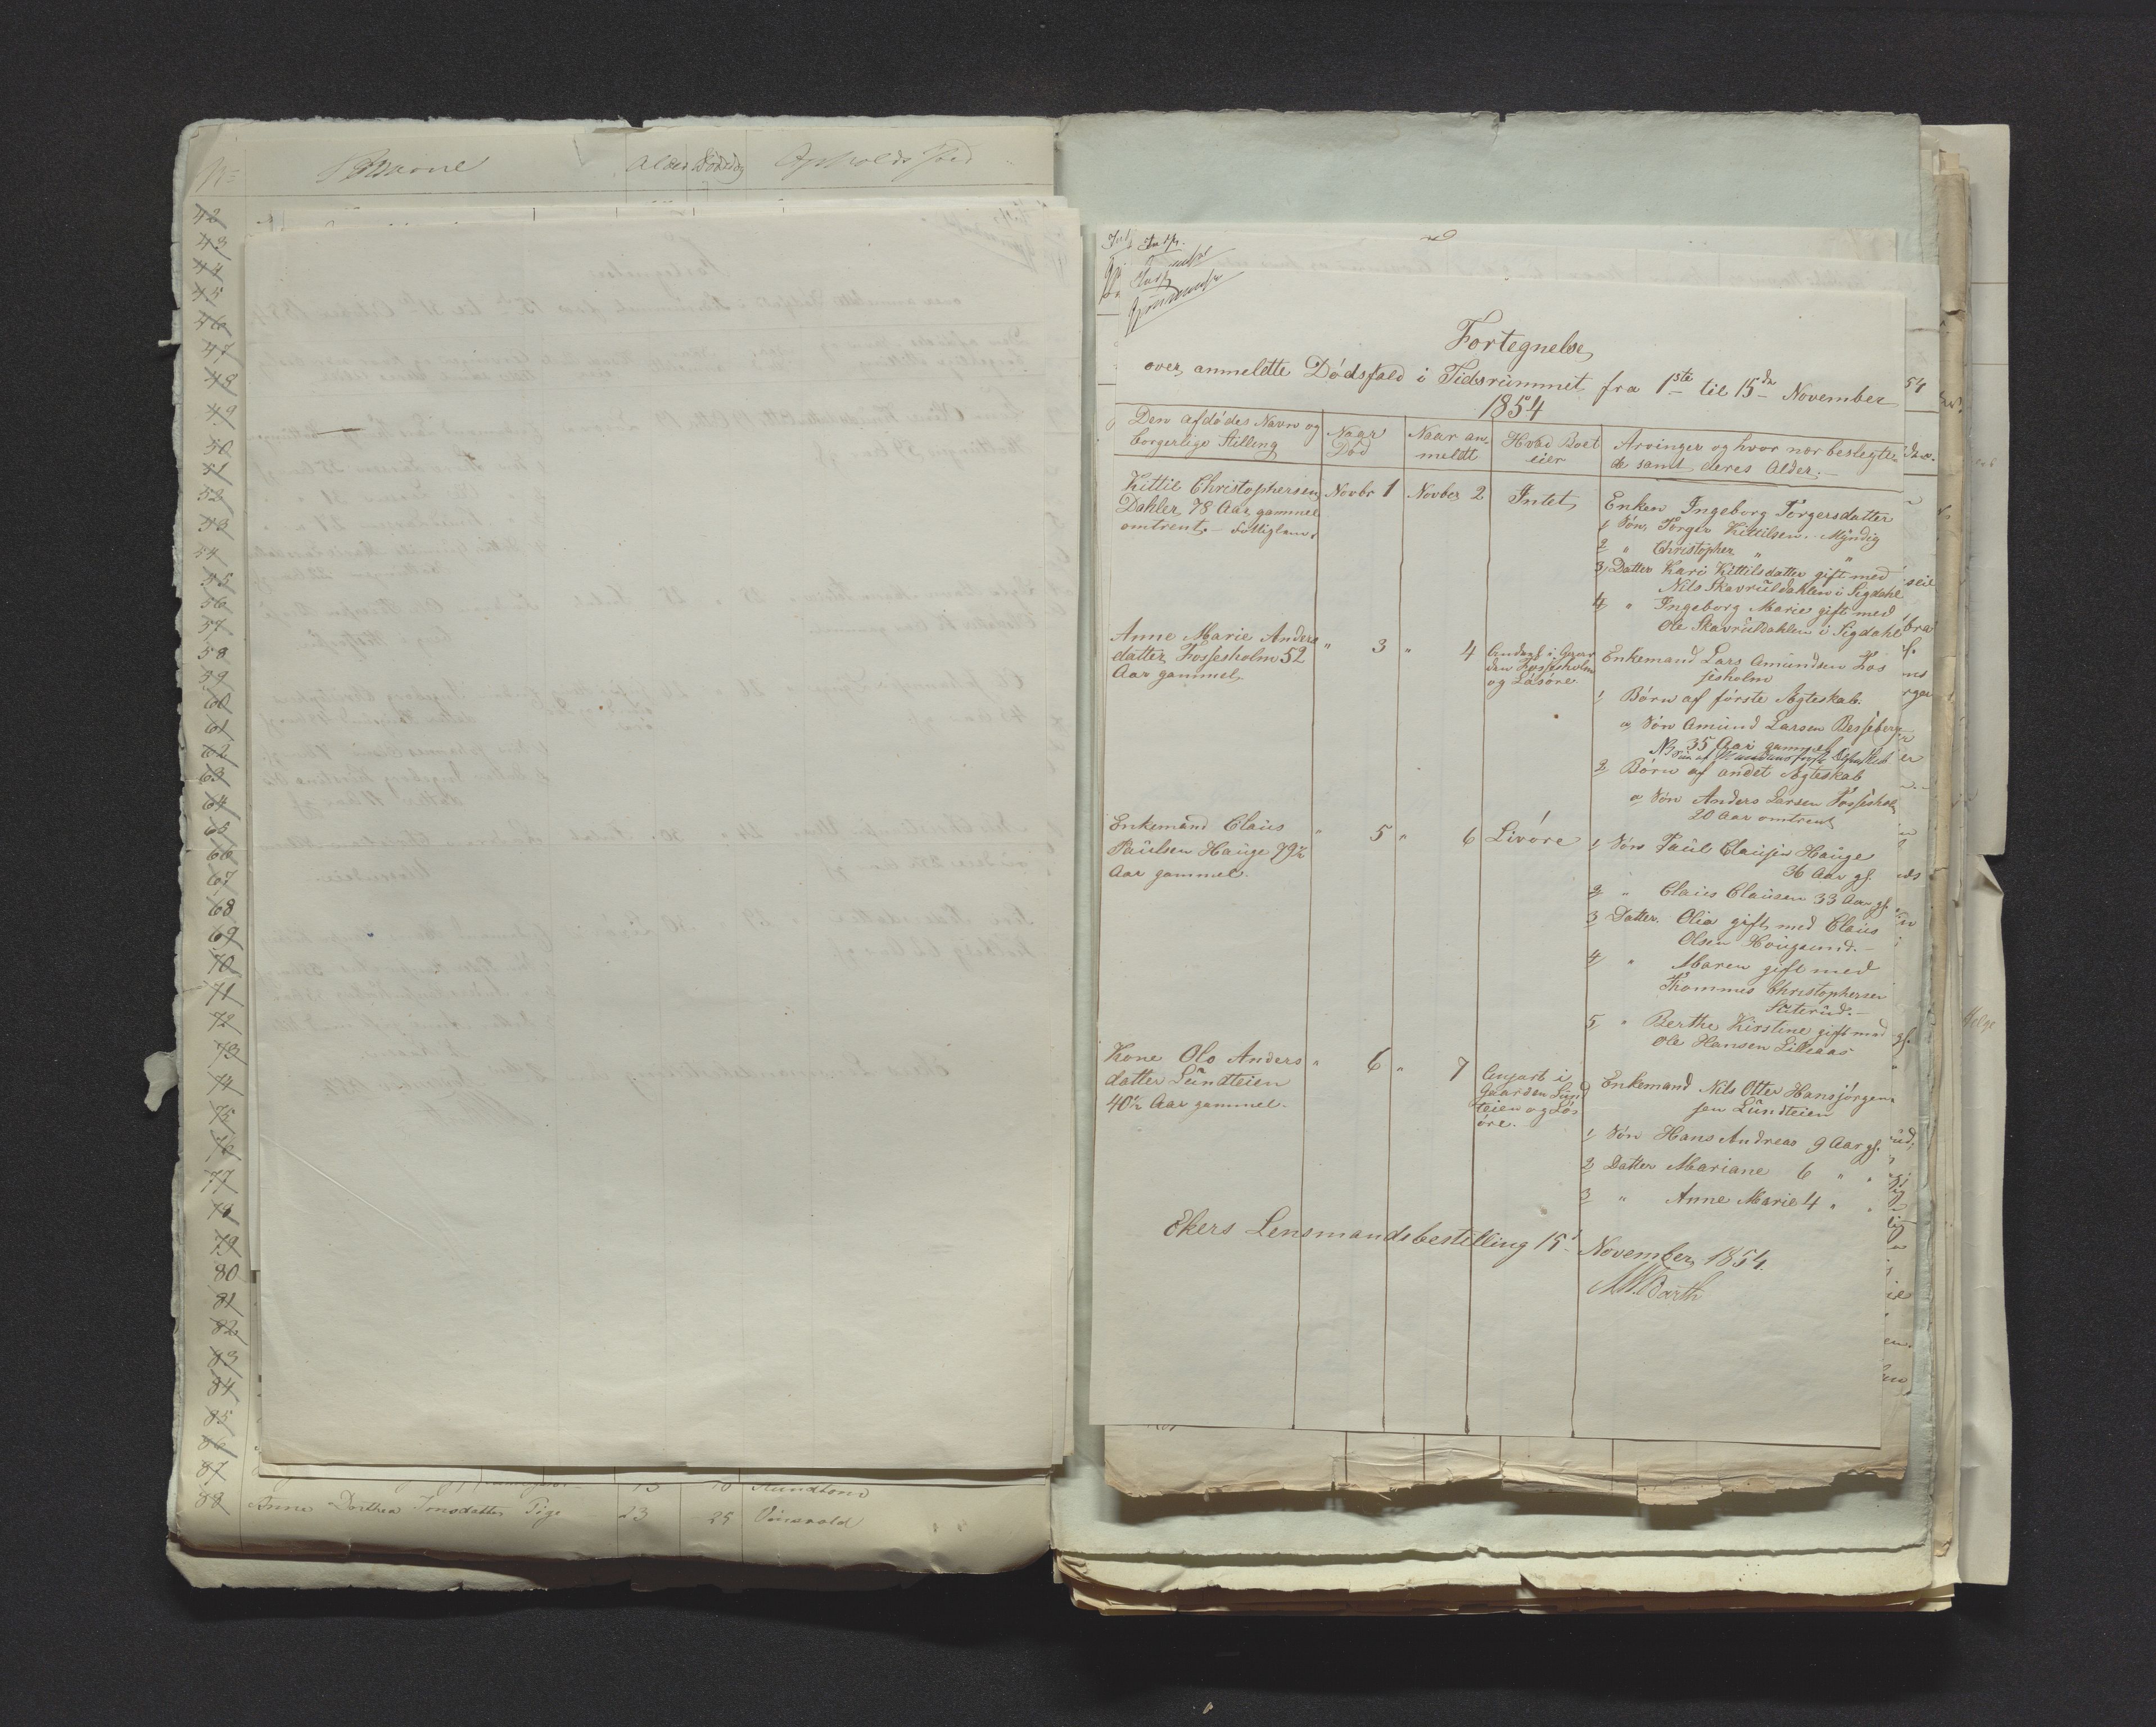 No
Navne
Alder
Dødsdag
Opholds Sted
42
43
44
45
46
47
48
49
50
51
52
53
54
55
56
57
58
59
60
61
62
63
64
65
66
67
68
69
70
71
72
73
74
75
76
77
78
79
80
81
82
83
84
85
86
87
88 Anne Dorthea Jonsdatter Pige 23 25
Fortegnelse
over anmeldte Dödsfald i Tidsrümmet fra 1ste til 15de November
1854
Den afdödes Navn og
borgerlige Stilling
Naar
Död
Naar an-
meldt
Hvad Boet
eier
Arvinger og hvor nær beslegte-
de samt deres Alder.-
Kittil Christophersen
Dahler 78 Aar gammel
omtrent. - Fattiglem.
Novbr 1
Novber 2
Intet
Enken Ingeborg Torgersdatter
1 Søn, Torger Kittilsen. Myndig
2 " Christopher " "
3 Datter Kari Kittilsdatter gift med
Nils Skavrüddahlen i Sigdahl
4 " Ingeborg Marie gift med
Ole Skavrüddahlen i Sigdahl
Anne Marie Anders
datter Fossesholm 52
Aar gammel
" 3
" 4
Andeel i Gaar
den Fossesholm
og Løsøre
Enkemand Lars Amundsen Fos
sesholm
1 Börn af förste Ægteskab.
a Sön Amund Larsen Besseberg
35 Aar gammel
2 Börn af andet Ægteskab
a Sön Anders Larsen Fossesholm
20 Aar omtrent
Enkemand Claus
Paulsen Hauge 79½
Aar gammel.
" 5
" 6
Livöre
1 Sön Paul Clausen Hauge
36 Aar gl.
2 " Claus Clausen 33 Aar gl.
3 Datter Olia gift med Claus
Olsen Hougsund.-
4 " Maren gift med
Thommes Christophersen
Süterüd.-
5 " Berthe Kirstine gift med
Ole Hansen Lilleaas
Kone Olo Anders
datter Lundteien
40½ Aar gammel.
" 6
" 7
Anpart i
Gaarden Lund
teien og Løs
øre.-
Enkemand Nils Otter Hansjörgen
sen Lündteien
1 Sön Hans Andreas 9 Aar gl.
2 Datter Mariane 6 " "
3 " Anne Marie 4 " "
Ekers Lensmandsbestilling 15d November 1854.
MW.Barth